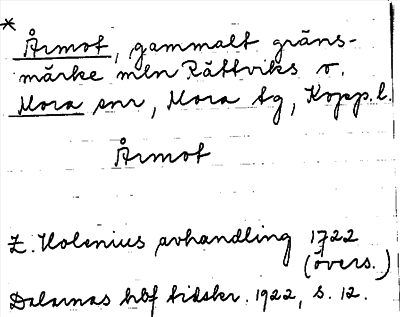 * Årmot, gammalt gräns-
märke mln Rättviks o.
Mora snr, Mora tg, Kopp. l.
Årmot
Z. Holenius avhandling 1722
(övers.)
Dalarnas hbf tidskr. 1922, s. 12.